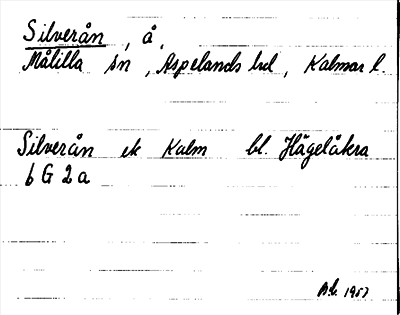 Silverån, å,
Målilla sn, Aspelands hd, Kalmar l.
Silverån ek Kalm bl. Hägelåkra
6 G 2 a
1957